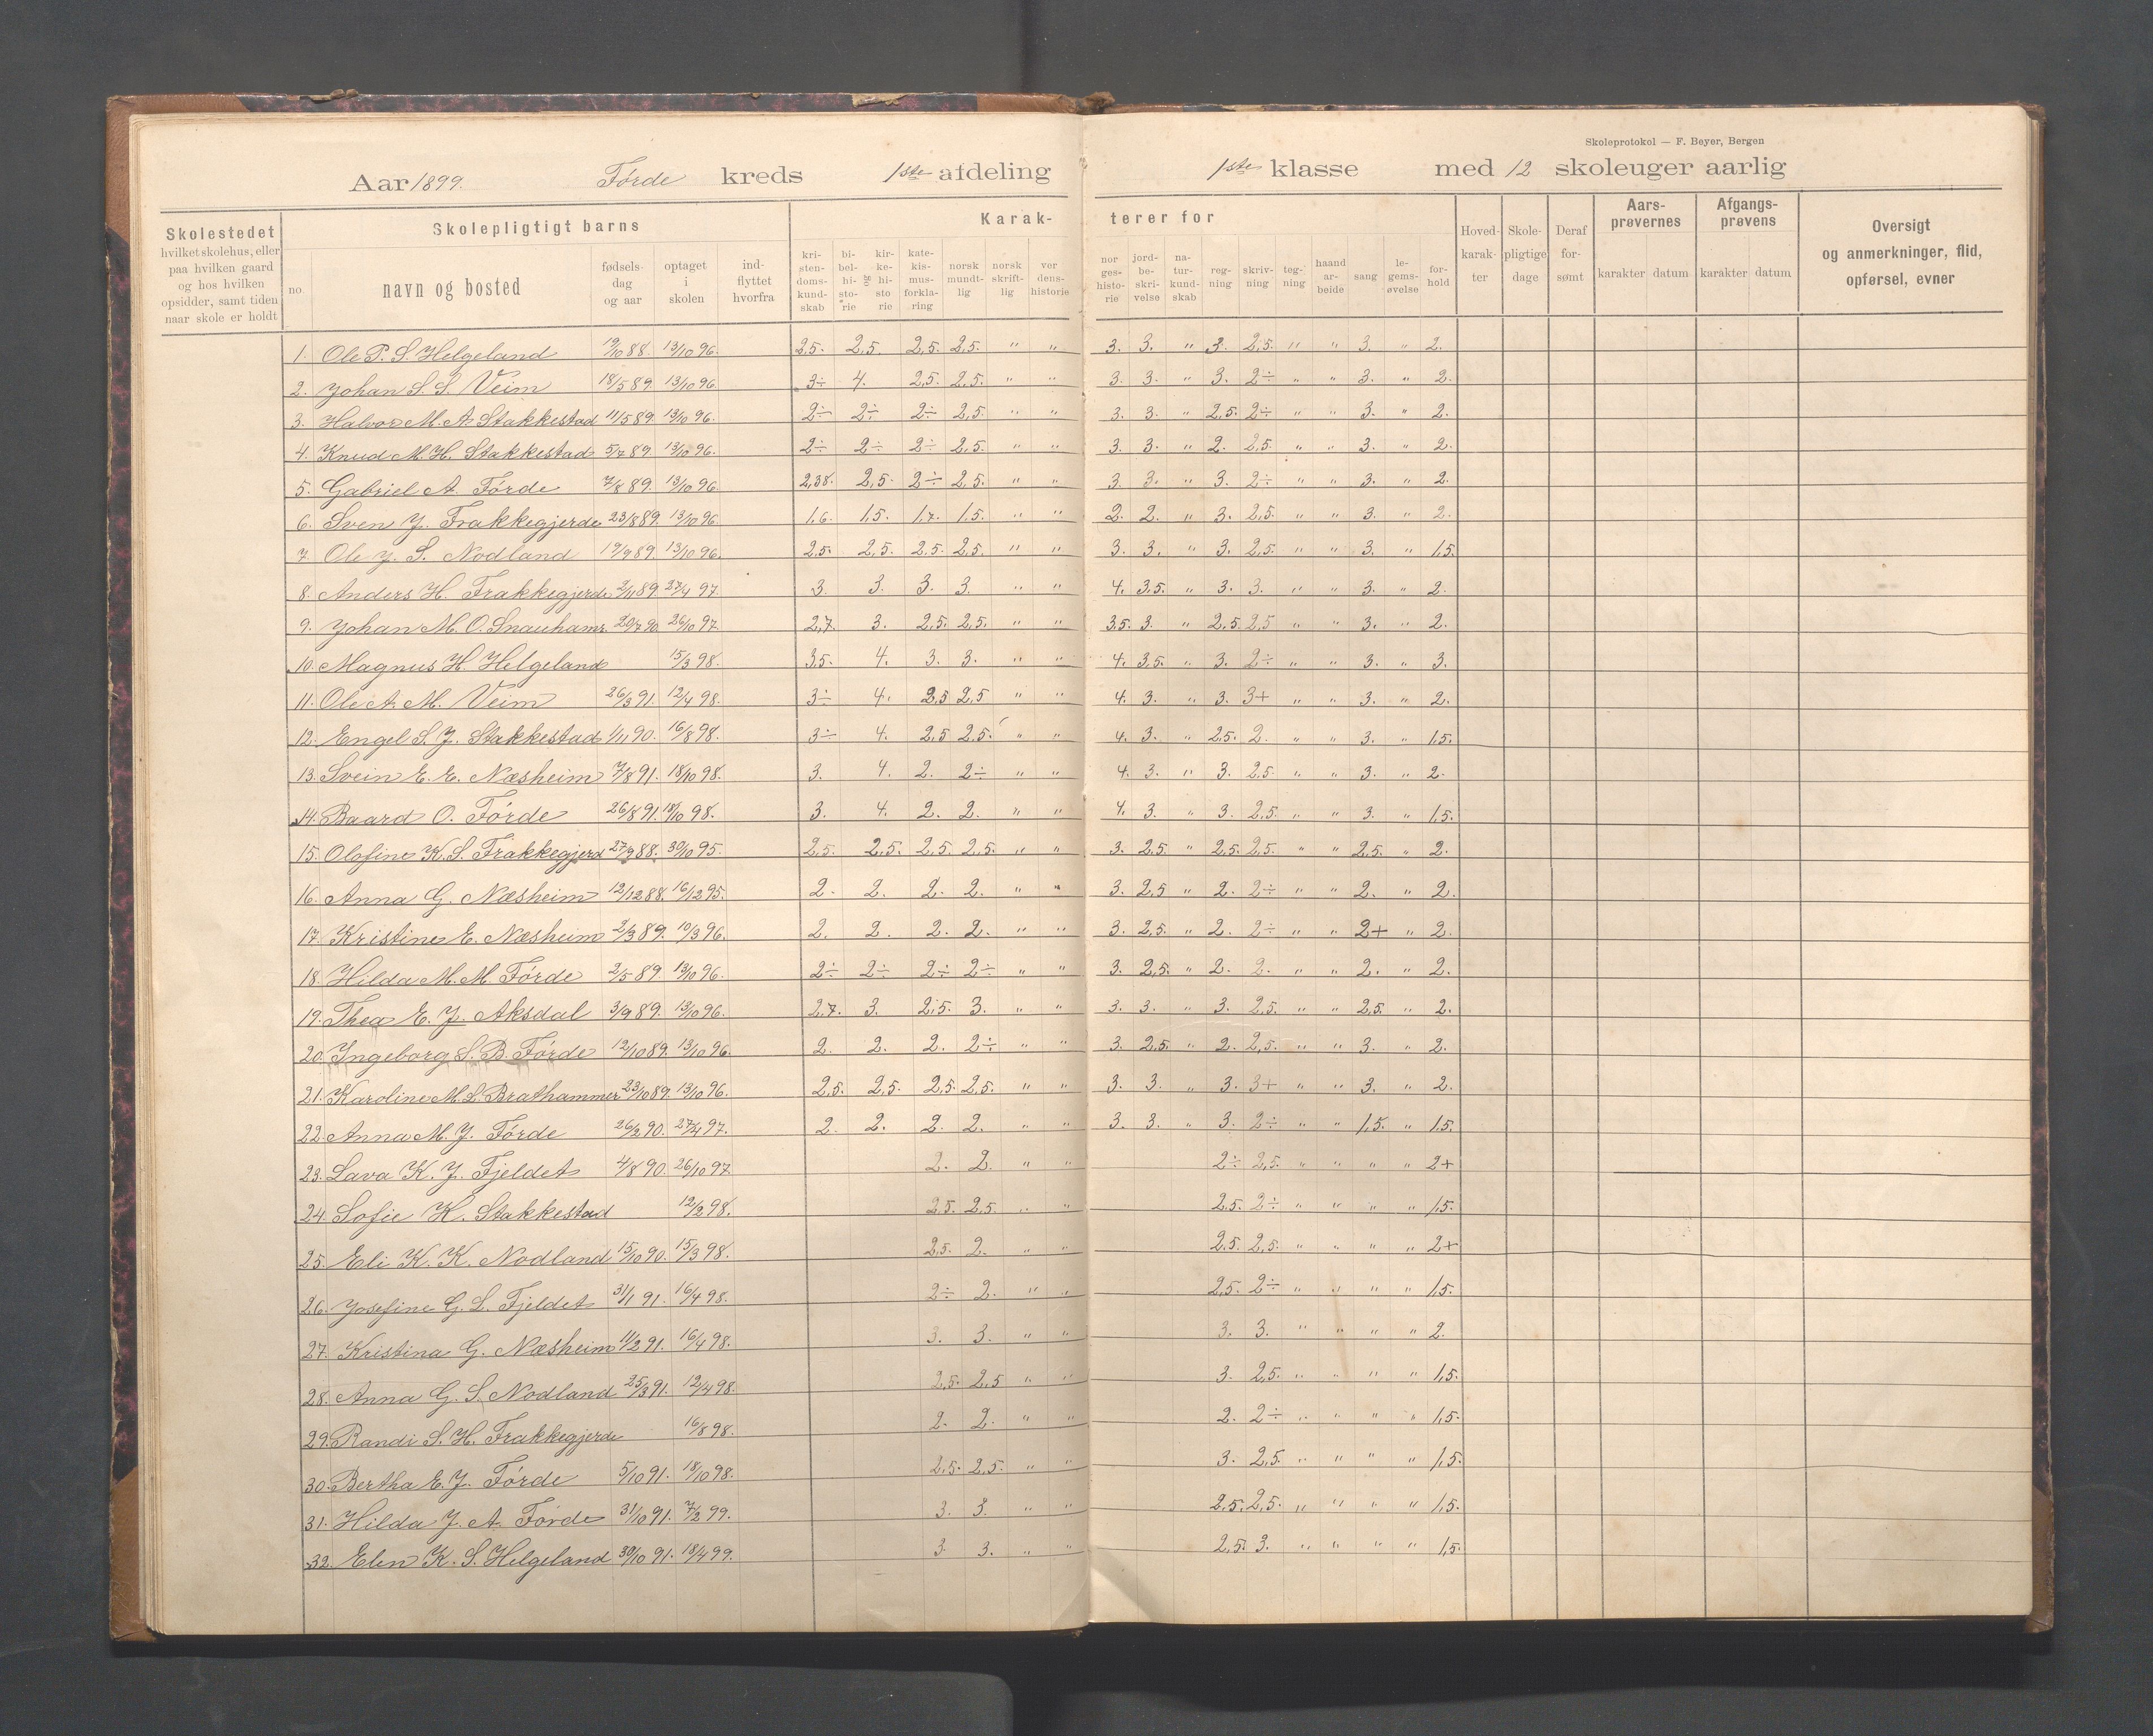 Skoleprotokol — F. Beyer, Bergen
Aar 1899. Førde kreds 1ste afdeling 1ste klasse med 12 skoleuger aarlig
Skolestedet
hvilket skolehus, eller
paa hvilken gaard
og hos hvilken
opsidder, samt tiden
naar skole er holdt
Skolepligtigt barns
no.
navn og bosted
fødsels-
dag
og aar
optaget
i
skolen
ind-
flyttet
hvorfra
Karak-
terer for
kri-
sten-
doms-
kund-
skab
bi-
bel-
hi-
sto-
rie
og
kir-
ke-
hi-
sto
rie
kate-
kis-
mus-
forkla-
ring
norsk
mundt-
lig
norsk
skrift-
lig
ver
dens-
historie
nor
ges-
histo-
rie
jord-
be-
skri-
velse
na-
tur-
kund-
skab
reg-
ning
skriv-
ning
teg-
ning
haand
ar-
beide
sang
le-
gems-
øvelse
for-
hold
Hoved-
karak-
ter
Skole-
pligtige
dage
Deraf
for-
sømt
Aars-
prøvernes
karakter datum
Afgangs-
prøvens
karakter datum
Oversigt
og anmerkninger, flid,
opførsel, evner
1. Ole P. S. Helgeland 19/10 88. 13/10 96. 2,5. 2,5. 2,5. 2,5. " " 3. 3. " 3. 2,5. " " 3. " 2.
2. Johan S. S. Veim 18/5 89. 13/10 96. 3÷ 4. 2,5. 2,5. " " 3. 3. " 3. 2÷ " " 3. " 2.
3. Halvor M. A. Stakkestad 11/5 89. 13/10 96. 2÷ 2÷ 2÷ 2,5. " " 3. 3. " 2,5. 2÷ " " 3. " 2.
4. Knud M. H. Stakkestad 5/7 89. 13/10 96. 2÷ 2÷ 2÷ 2,5. " " 3. 3. " 2. 2,5. " " 3. " 2.
5. Gabriel A. Førde 7/8 89. 13/10 96. 2,38. 2,5. 2÷ 2,5. " " 3. 3. " 3. 2÷ " " 3. " 2.
6. Sven J. Frakkegjerde 23/8 89. 13/10 96. 1,6. 1,5. 1,7. 1,5. " " 2. 2. " 3. 2,5. " " 3. " 2.
7. Ole J. S. Nodland 19/9 89. 13/10 96. 2,5. 2,5. 2,5. 2,5. " " 3. 3. " 3. 2,5. " " 3. " 1,5.
8. Anders H. Frakkegjerde 2/11 89. 27/4 97. 3. 3. 3. 3. " " 4. 3,5. " 3. 3. " " 3. " 2.
9. Johan M. O. Snauhamr. 20/7 90. 26/10 97. 2,7. 3. 2,5. 2,5. " " 3,5. 3. " 2,5. 2,5 " " 3. " 2.
10. Magnus H. Helgeland 15/3 98. 3,5. 4. 3. 3. " " 4. 3,5. " 3. 2÷ " " 3. " 3.
11. Ole A. M. Veim 26/3 91. 12/4 98. 3÷ 4. 2,5 2,5 " " 4. 3. " 3. 3+ " " 3. " 2.
12. Engel S. J. Stakkestad 1/11 90. 16/8 98. 3÷ 4. 2,5 2,5 " " 4. 3. " 2,5. 2. " " 3. " 1,5.
13. Svein E. E. Næsheim 7/8 91. 18/10 98. 3. 4. 2. 2÷ " " 4. 3. " 3. 2,5. " " 3. " 2.
14. Baard O. Førde 26/8 91. 18/10 98. 3. 4. 2. 2. " " 4. 3. " 3. 2,5. " " 3. " 1,5.
15. Olofine K. S. Frakkegjerd 27/9 88. 30/10 95. 2,5. 2,5. 2,5. 2,5. " " 3. 2,5. " 2,5. 2,5. " " 2,5. " 2.
16. Anna G. Næsheim 12/12 88. 16/12 95. 2. 2. 2. 2. " " 3. 2,5 " 2. 2÷ " " 2. " 2.
17. Kristine E. Næsheim 2/3 89. 10/3 96. 2. 2. 2. 2. " " 3. 2,5. " 2. 2÷ " " 2+ " 2.
18. Hilda M. M. Førde 2/5 89. 13/10 96. 2÷ 2÷ 2÷ 2÷ " " 3. 2,5. " 2. 2. " " 2. " 2.
19. Thea E. J. Aksdal 3/9 89. 13/10 96. 2,7. 3. 2,5. 3. " " 3. 3. " 3. 2,5. " " 2,5. " 2.
20. Ingeborg S. B. Førde 12/10 89. 13/10 96. 2. 2. 2. 2÷ " " 3. 2,5. " 2. 2,5. " " 3. " 2.
21. Karoline M. L. Brathammer 23/10 89. 13/10 96. 2,5. 2,5. 2,5. 2,5. " " 3. 3. " 3. 3+ " " 3. " 2.
22. Anna M. J. Førde 26/2 90. 27/4 97. 2. 2. 2. 2. " " 3. 3. " 3. 2÷ " " 1,5. " 1,5.
23. Lava K. J. Fjeldet 4/8 90. 26/10 97. 2. 2. " " 2÷ 2,5. " " " " 2+
24. Sofie K. Stakkestad 12/2 98. 2,5. 2,5. " " 2,5. 2÷ " " " " 1,5.
25. Eli K. K. Nodland 15/10 90. 15/3 98. 2,5. 2. " " 2,5. 2,5. " " " " 2+
26. Josefine G. L. Fjeldet 31/1 91. 16/4 98. 2÷ 2. " " 2,5. 2÷ " " " " 1,5.
27. Kristina G. Næsheim 11/2 91. 16/4 98. 3. 3. " " 3. 3. " " " " 2.
28. Anna G. S. Nodland 25/3 91. 12/4 98. 2,5. 2,5 " " 3. 2,5. " " " " 1,5.
29. Randi S. H. Frakkegjerde 16/8 98. 2. 2. " " 2. 2÷ " " " " 1,5.
30. Bertha E. J. Førde 5/10 91. 18/10 98. 2,5. 2,5. " " 3. 2,5. " " " " 1,5.
31. Hilda J. A. Førde 31/10 91. 7/2 99. 3. 3. " " 2,5. 2,5. " " " " 1,5.
32. Elen K. S. Helgeland 30/10 91. 18/4 99. 3. 3. " " 2,5. 3. " " " " 1,5.